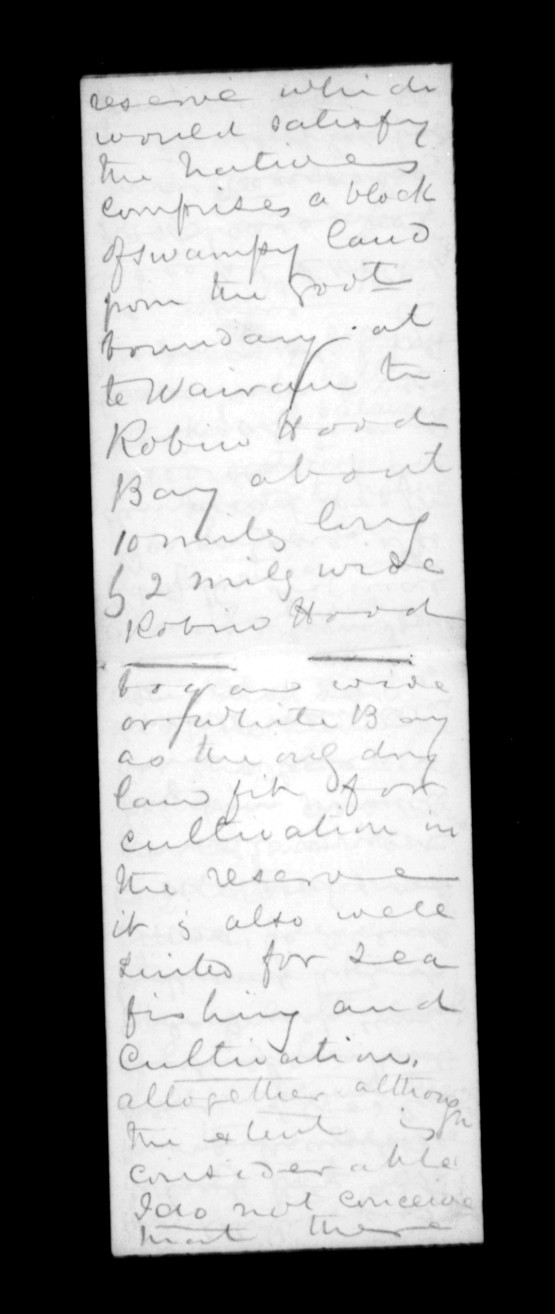 reserve which
would satisfy
the natives
comprises a block
of swampy land
from the Govt
boundary at
te Wairau to
Robin Hood
Bay about
10 miles long
by 2 miles wide
Robin Hood
bay
or White Bay
as the only dry
land fit for
cultivation in
the reserve
it is also well
suited for sea
fishing and
cultivation.
altogether although
the extent is
considerable
I do not conceive
that there